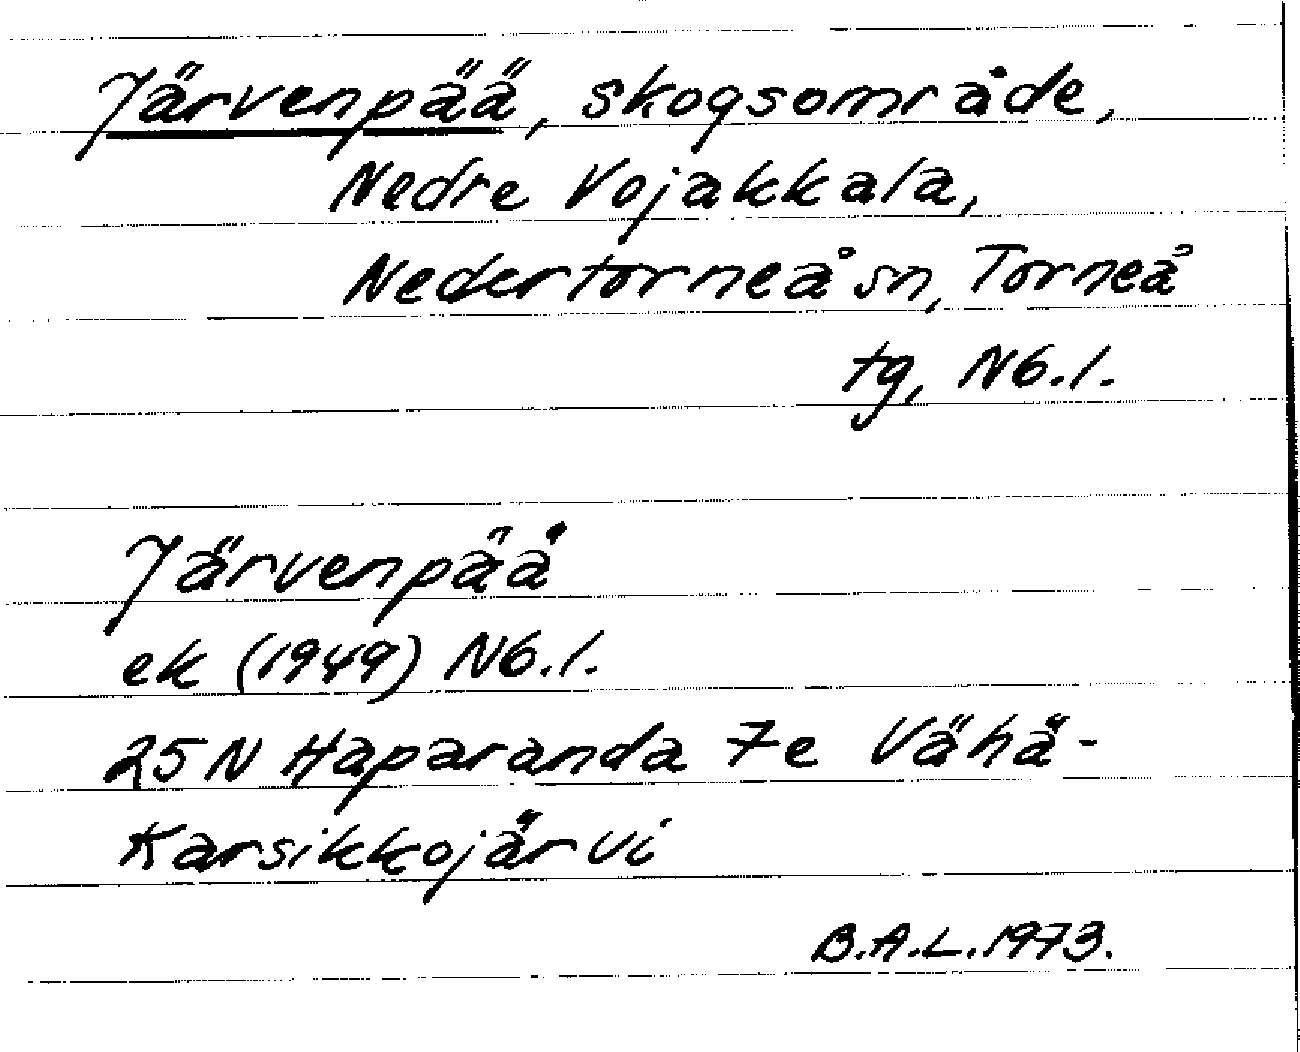 Järvenpää, skogsområde,
Nedre Vojakkala,
Nedertorneå sn, Torneå
tg, Nb.l.
Järvenpää
ek (1949) Nb.l.
25N Haparanda 7e Vähä-
Karsikkojärvi
B.A.L. 1973.